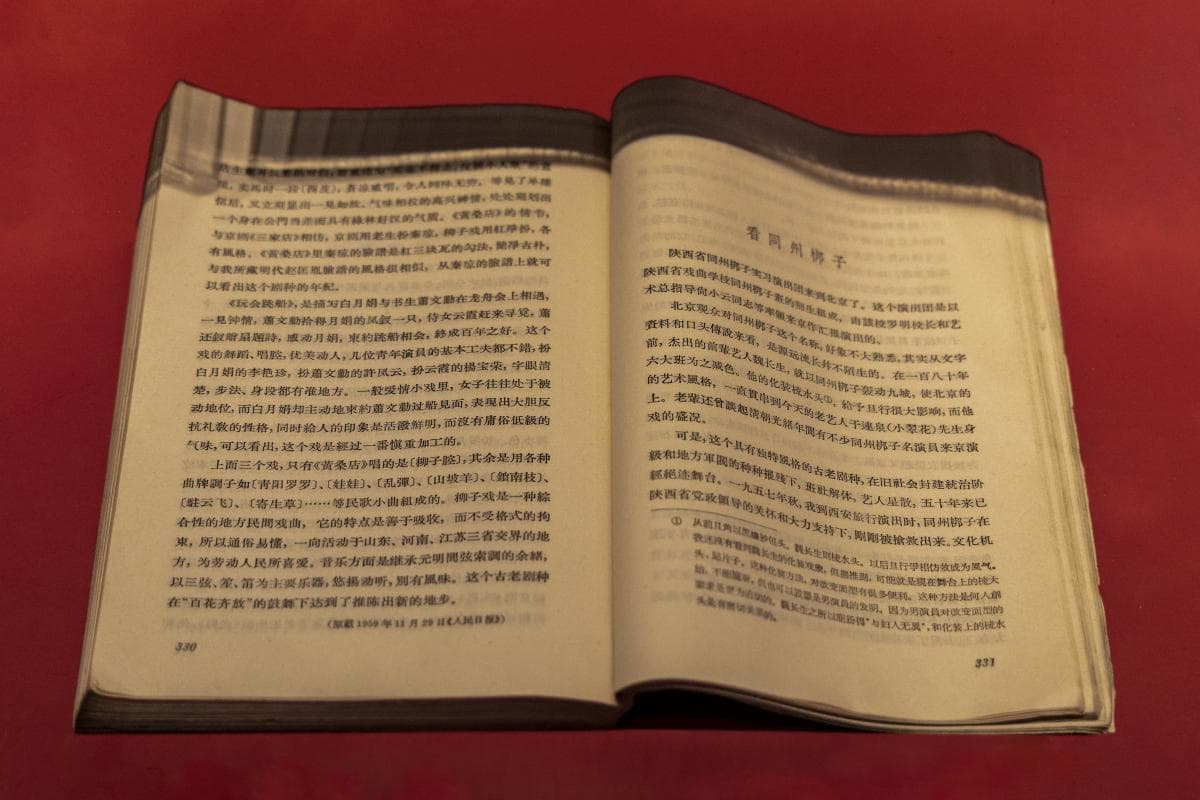 信后，又立刻显出一見如故、气味相投的高兴神情，处处刻划出
一个身在公門当差而具有綠林好汉的气质。《黄桑店》的情节，
与京剧《三家店》相仿，京剧用老生扮秦琼，柳子戏用紅淨扮，各
有風格。《黄桑店》里秦琼的臉譜是紅三块瓦的勾法，簡淨古朴，
与我所藏明代赵匡胤臉譜的風格很相似，从秦琼的臉譜上就可
以看出这个剧种的年紀。
《玩会跳船》，是描写白月娟与书生蕭文勤在龙舟会上相遇，
一見钟情，蕭文勤拾得月娟的凤釵一只，侍女云霞赶来寻觅，蕭
还釵赠扇題詩，感动月娟，柬約跳船相会，終成百年之好。这个
戏的舞蹈、唱腔，优美动人，几位青年演員的基本工夫都不錯，扮
白月娟的李艳珍，扮蕭文勤的許凤云，扮云霞的楊宝荣，字眼清
楚，步法、身段都有准地方。一般爱情小戏里，女子往往处于被
动地位，而白月娟却主动地柬約蕭文勤过船見面，表現出大胆反
抗礼敎的性格，同时給人的印象是活潑鮮明，而沒有庸俗低級的
气味，可以看出，这个戏是經过一番愼重加工的。
上面三个戏，只有《黄桑店》唱的是〔柳子腔〕，其余是用各种
曲牌調子如〔青阳罗罗〕、〔娃娃〕、〔乱彈〕、〔山坡羊〕、〔鎖南枝〕、
〔駐云飞〕、〔寄生草〕……等民歌小曲組成的。柳子戏是一种綜
合性的地方民間戏曲，它的特点是善于吸收，而不受格式的拘
束，所以通俗易懂，一向活动于山东、河南、江苏三省交界的地
方，为劳动人民所喜爱。音乐方面是继承元明間弦索調的余緒，
以三弦、笙、笛为主要乐器，悠揚动听，別有風味。这个古老剧种
在“百花齐放”的鼓舞下达到了推陈出新的地步。
（原載1959年11月29日《人民日报》）
330
看同州梆子
陕西省同州梆子实习演出团来到北京了。这个演出团是以
陕西省戏曲学校同州梆子班的師生組成，由該校罗明校长和艺
术总指导尙小云同志等率領来京作汇报演出的。
北京观众对同州梆子这个名称，好象不大熟悉，其实从文字
資料和口头傳說来看，是源远流长并不陌生的。在一百八十年
前，杰出的前辈艺人魏长生，就以同州梆子轰动九城，使北京的
六大班为之减色。他的化装梳水头①，給予旦行很大影响，而他
的艺术風格，一直貫串到今天的老艺人于連泉（小翠花）先生身
上。老輩还曾談起清朝光緒年間有不少同州梆子名演員来京演
戏的盛况。
可是，这个具有独特風格的古老剧种，在旧社会封建統治阶
級和地方軍閥的种种摧残下，班社解体，艺人星散，五十年来已
經絕迹舞台。一九五七年秋，我到西安旅行演出时，同州梆子在
陕西省党政领导的关怀和大力支持下，剛剛被搶救出来。文化机
① 从前旦角以黑縐紗包头。魏长生則梳水头。以后旦行尹相仿效成为風气。
我还沒有看到魏长生的化装戏象，但据推測，可能就是現在舞台上的梳大
头、貼片子，这种化装方法，对改变面型有很多便利。这种方法是何人創
331